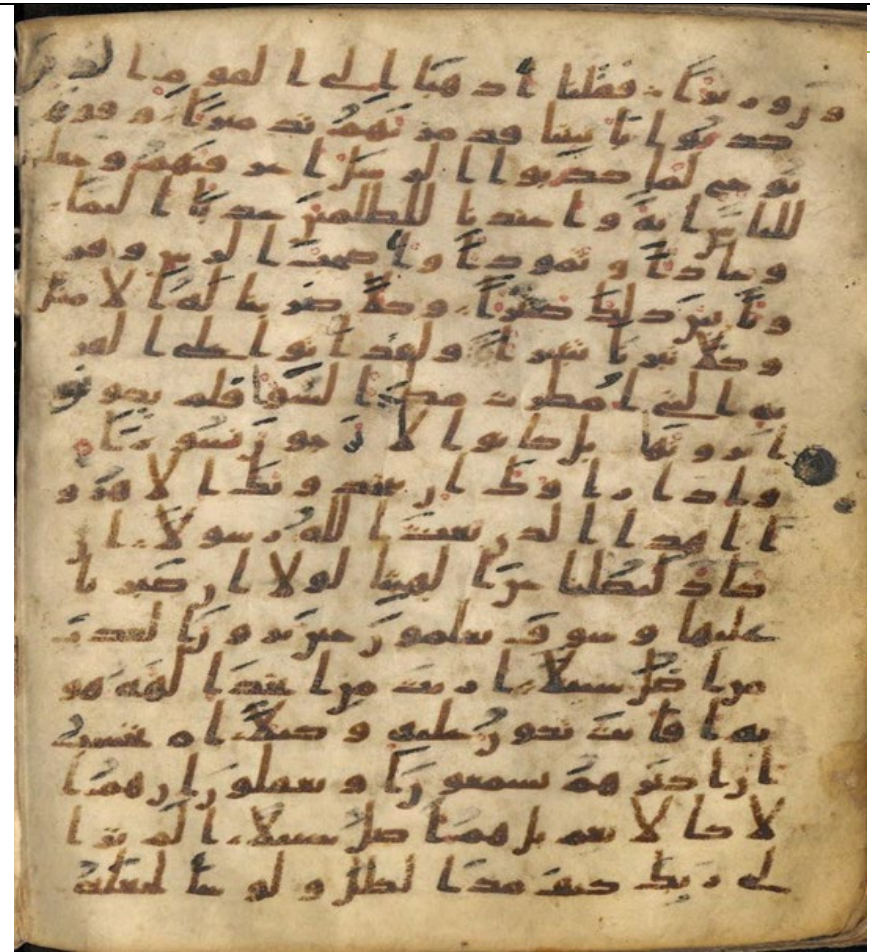 وزيرا فقلنا اذهبا الى القوم الذين
كذبوا بايتنا فدمرنهم تدميرا وقوم
نوح لما كذبوا الرسل اغرقنهم وجعلنهم
للناس اية واعتدنا للظلمين عذابا اليما
وعادا وثمودا واصحب الرس وقر
ونا بين ذلك كثيرا وكلا ضربنا له الامثل
وكلا تبرنا تتبيرا ولقد اتوا على القر
ية التي امطرت مطر السوء افلم يكونوا
يرونها بل كانوا لا يرجون نشورا
واذا راوك ان يتخذونك الا هزو
ا اهذا الذي بعث الله رسولا ان
كاد ليضلنا عن الهتنا لولا ان صبرنا
عليها وسوف يعلمون حين يرون العذب
من اضل سبيلا اريت من اتخذ الهه هو
يه افانت تكون عليه وكيلا ام تحسب
ان اكثرهم يسمعون او يعقلون ان هم ا
لا كالانعم بل هم اضل سبيلا الم تر ا
لى ربك كيف مد الظل ولو شا لجعله